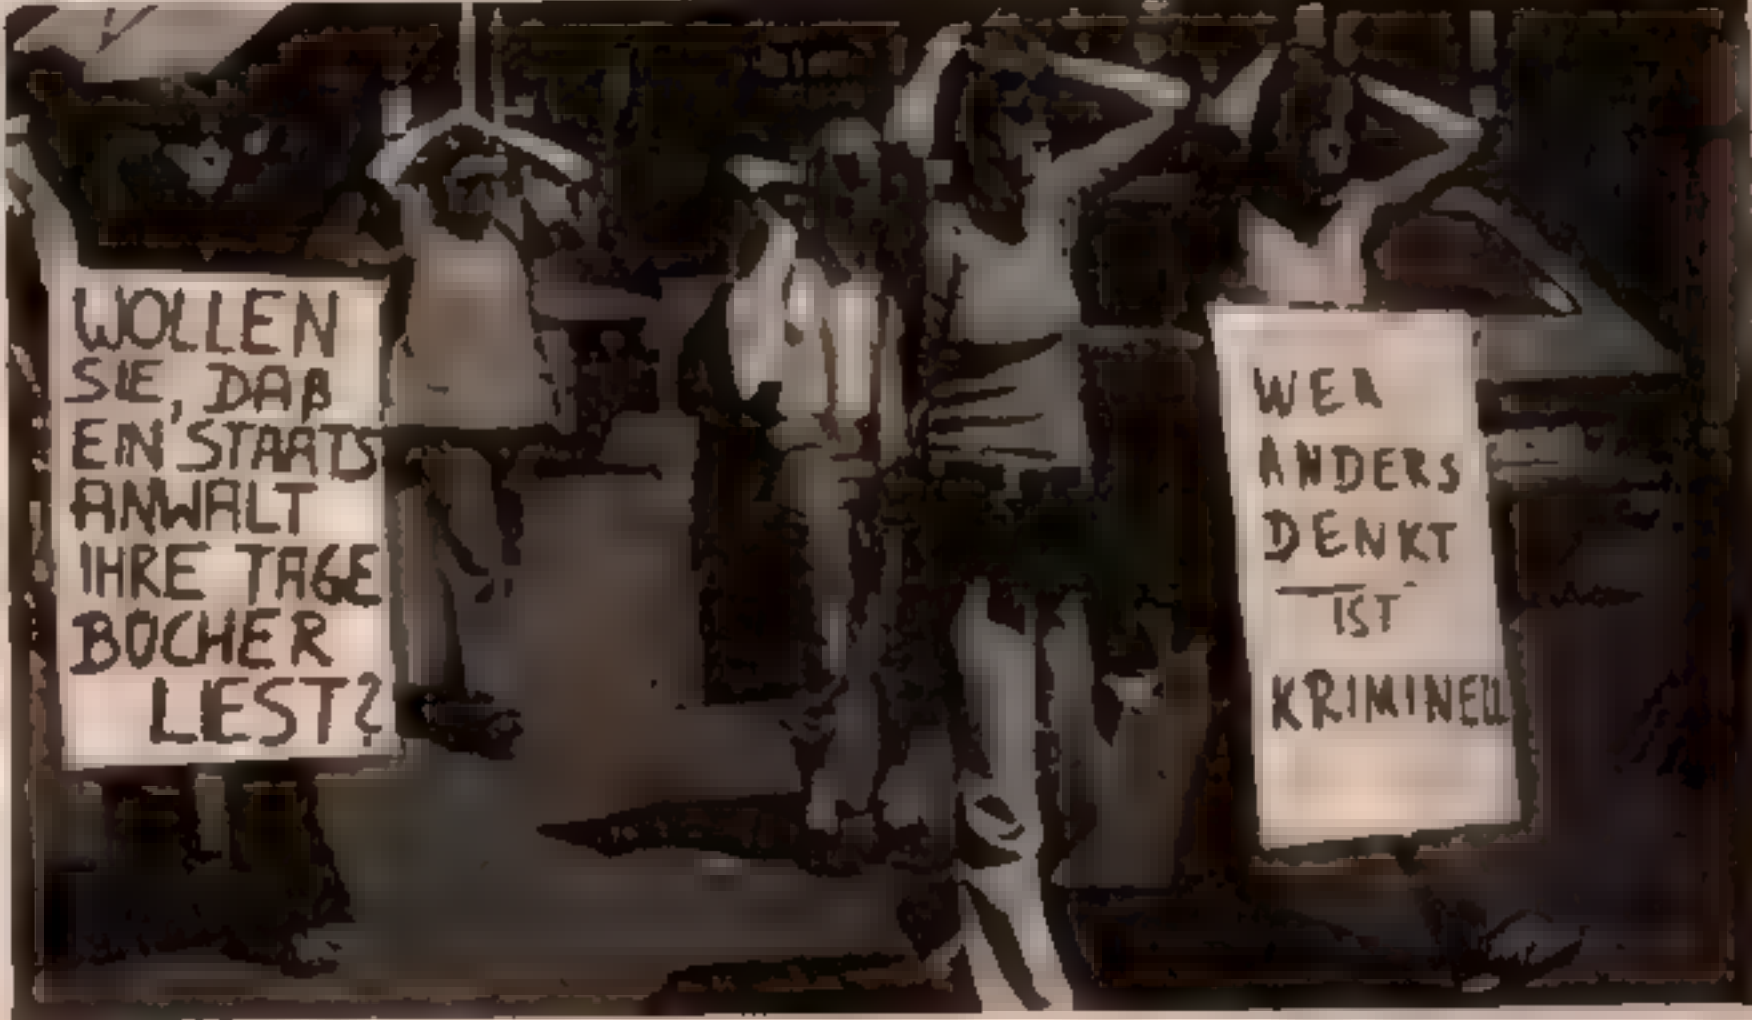 WOLLEN
SIE, DAß
EIN STAATS
ANWALT
IHRE TAGE
BÜCHER
LIEST?
WER
ANDERS
DENKT
IST
KRIMINELL